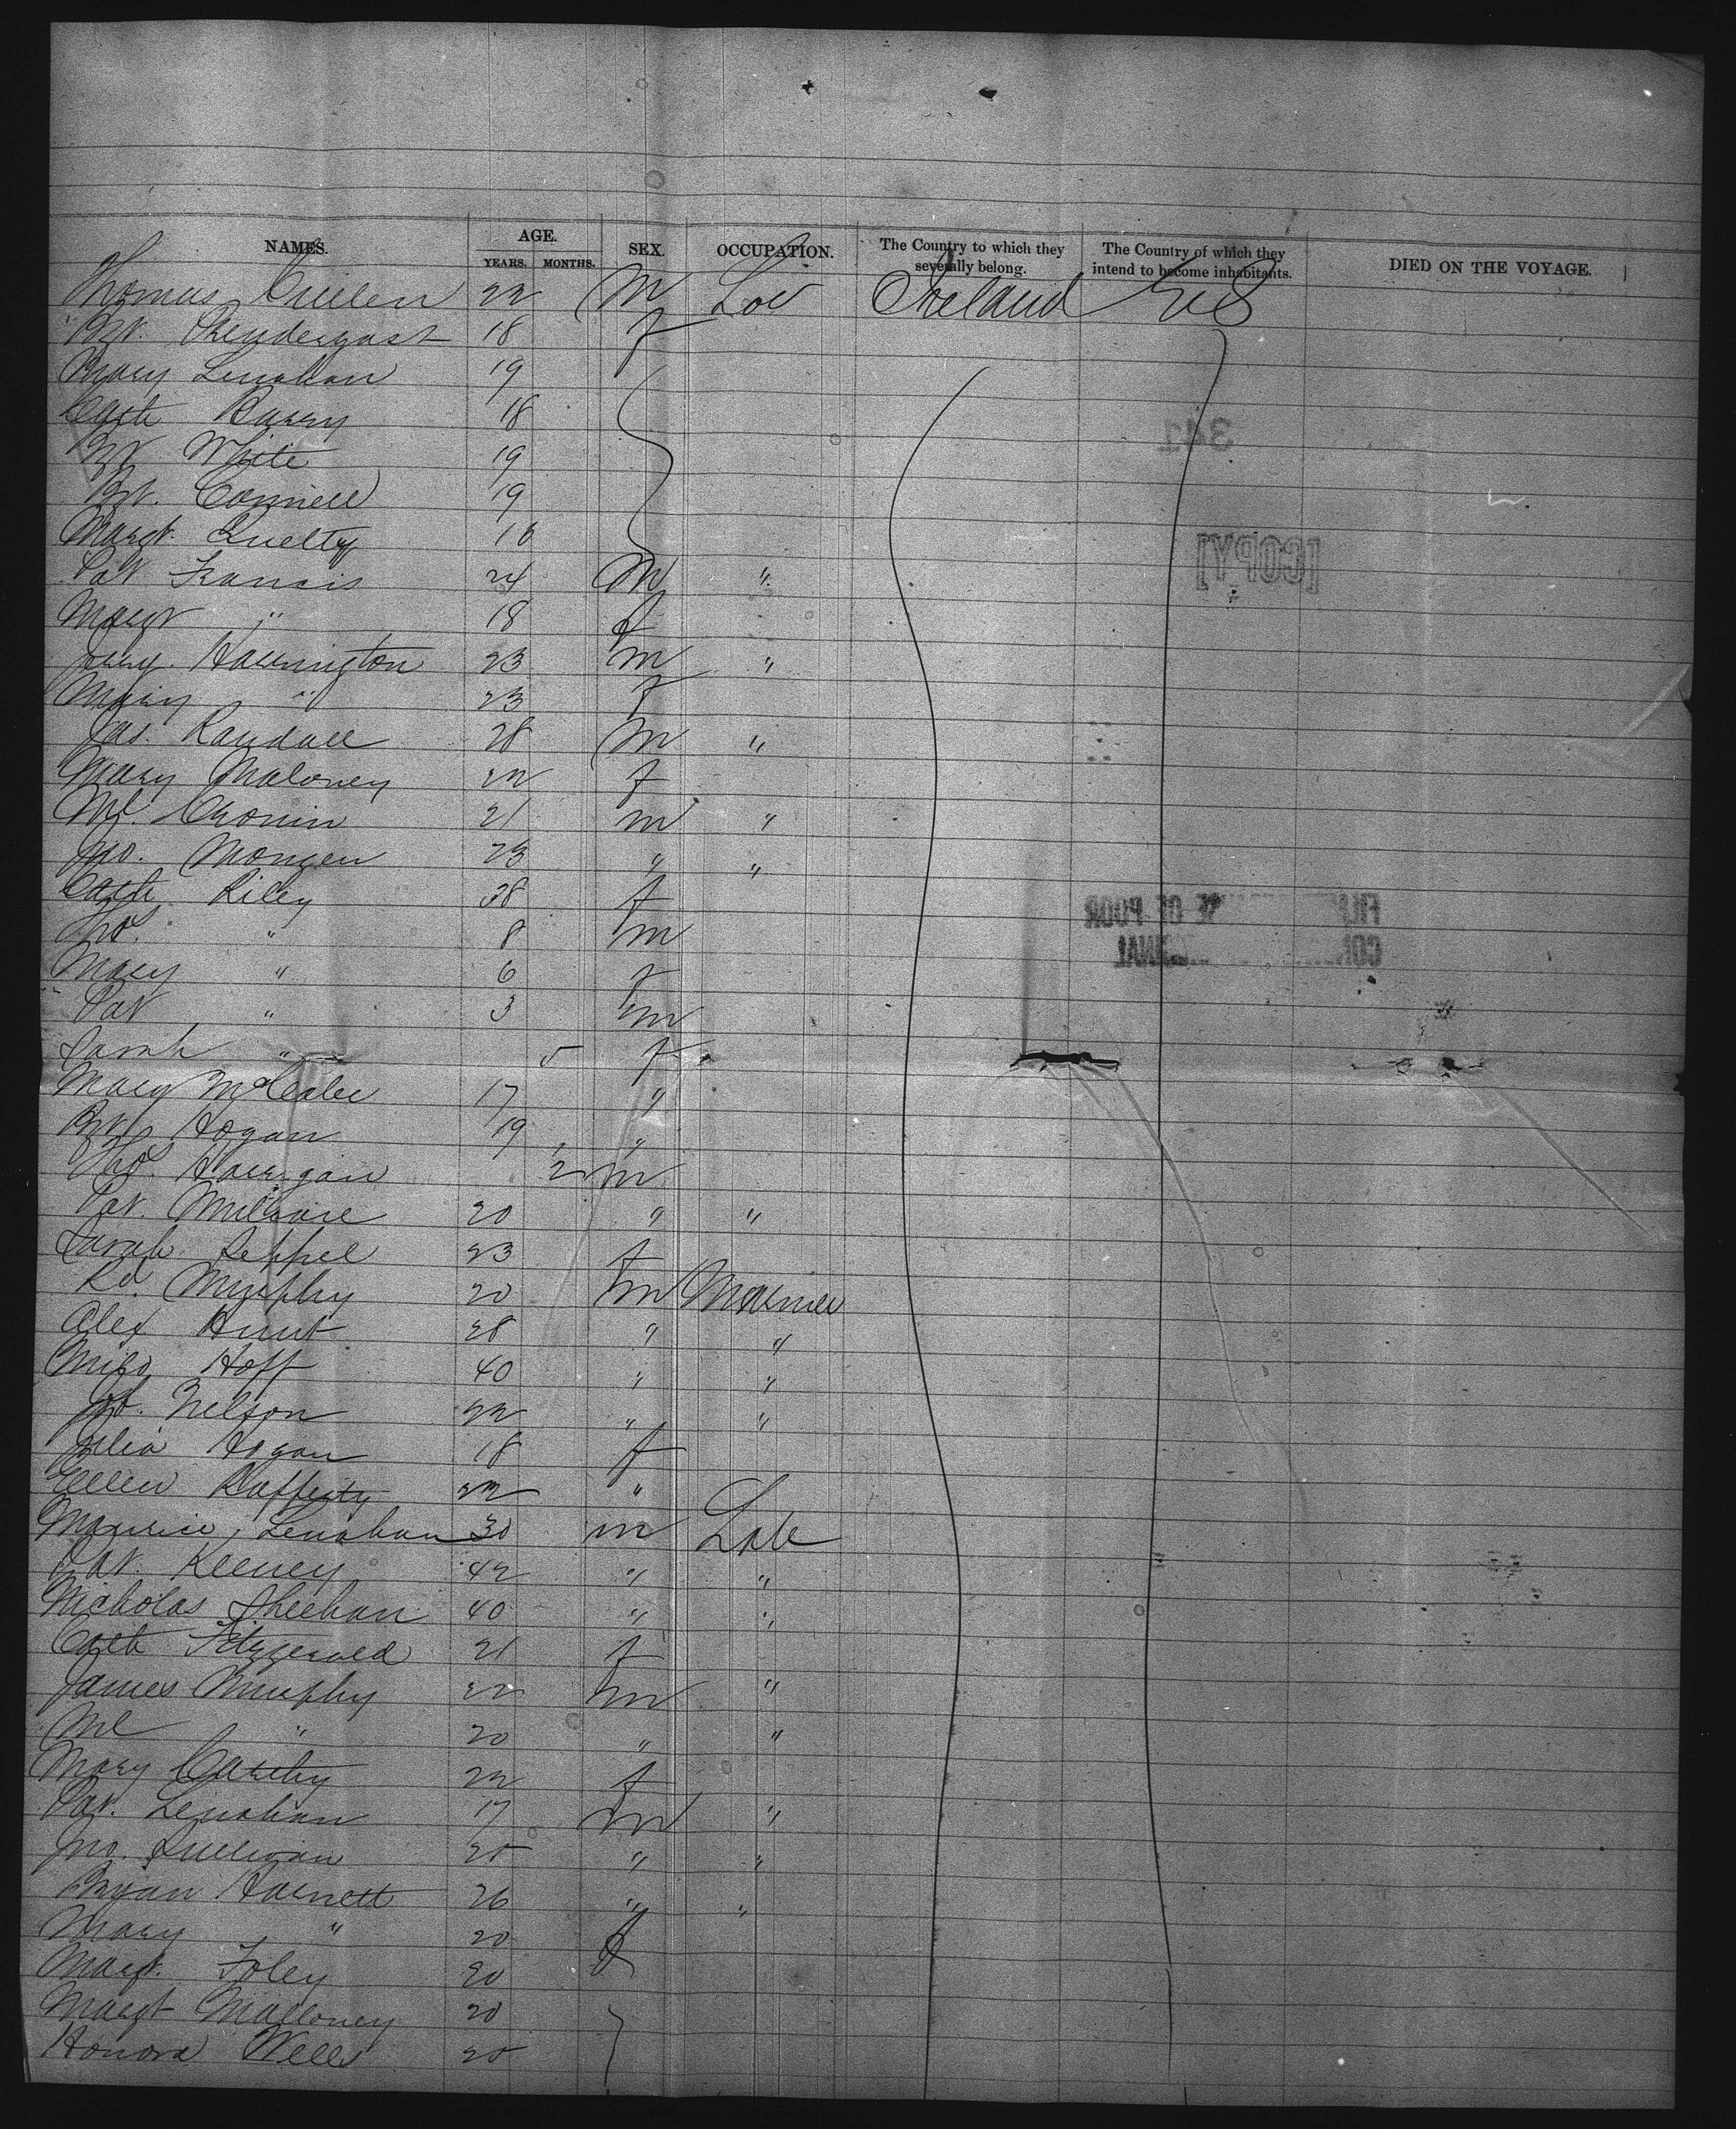 NAMES. AGE. YEARS. MONTHS. SEX. OCCUPATION. The Country to which they severally belong. The Country of which they intend to become inhabitants. DIED ON THE VOYAGE.
Thomas Cullen 22 M Lab Ireland US
Bgt. Prendergast 18 f
Mary Lenahan 19
Cath Barry 18
Bgt White 19
Bgt. Connell 19
Margt. Quelty 18
Pat Francis 24 M "
Margt " 18 f
Jerry. Harrington 23 m "
Mary " 23 f
Jas. Randall 28 m "
Mary Maloney 22 f
Ml. Cronin 21 m "
Jno. Mongen 23 " "
Cath Riley 38 f
Thos. " 8 m
Mary " 6 f
Pat " 3 m
Sarah " 5 f
Mary 17 "
Bgt Hogan 19 "
Thos. Harrigan 2 m
Pat. 20 " "
Sarah 23 f
Rd. Murphy 20 m Mariner
Alex Hunt 28 " "
Hoff 40 " "
Nelson 22 " "
Julia Hogan 18 f
Ellen Rafferty 22 "
Maurice Lenahan 30 m Lab
Pat. Keeney 42 " "
Nicholas Sheehan 40 " "
Cath Fitzgerald 21 f
James Murphy 22 m "
Ml " 20 " "
Mary Carthy 22 f
Pat. Lenahan 17 m "
Jno. Sullivan 25 " "
Bryan Harnett 26 " "
Mary " 20 f
Margt. Foley 20
Margt Malloney 20
Honora Wells 20
341
[COPY]